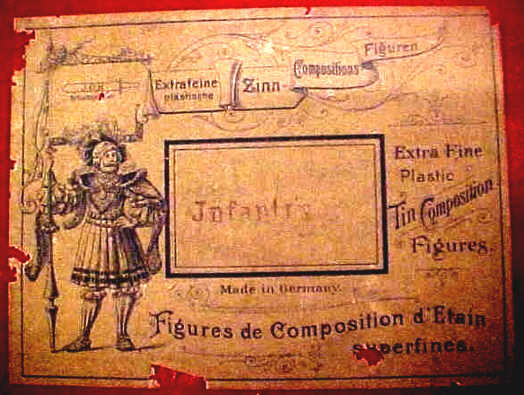 Extrafeine
plastische
Zinn-
Compositions
Figuren
Extra Fine
Plastic
Tin Composition
Figures.
Made in Germany.
Figures de Composition d'Etain
superfines.